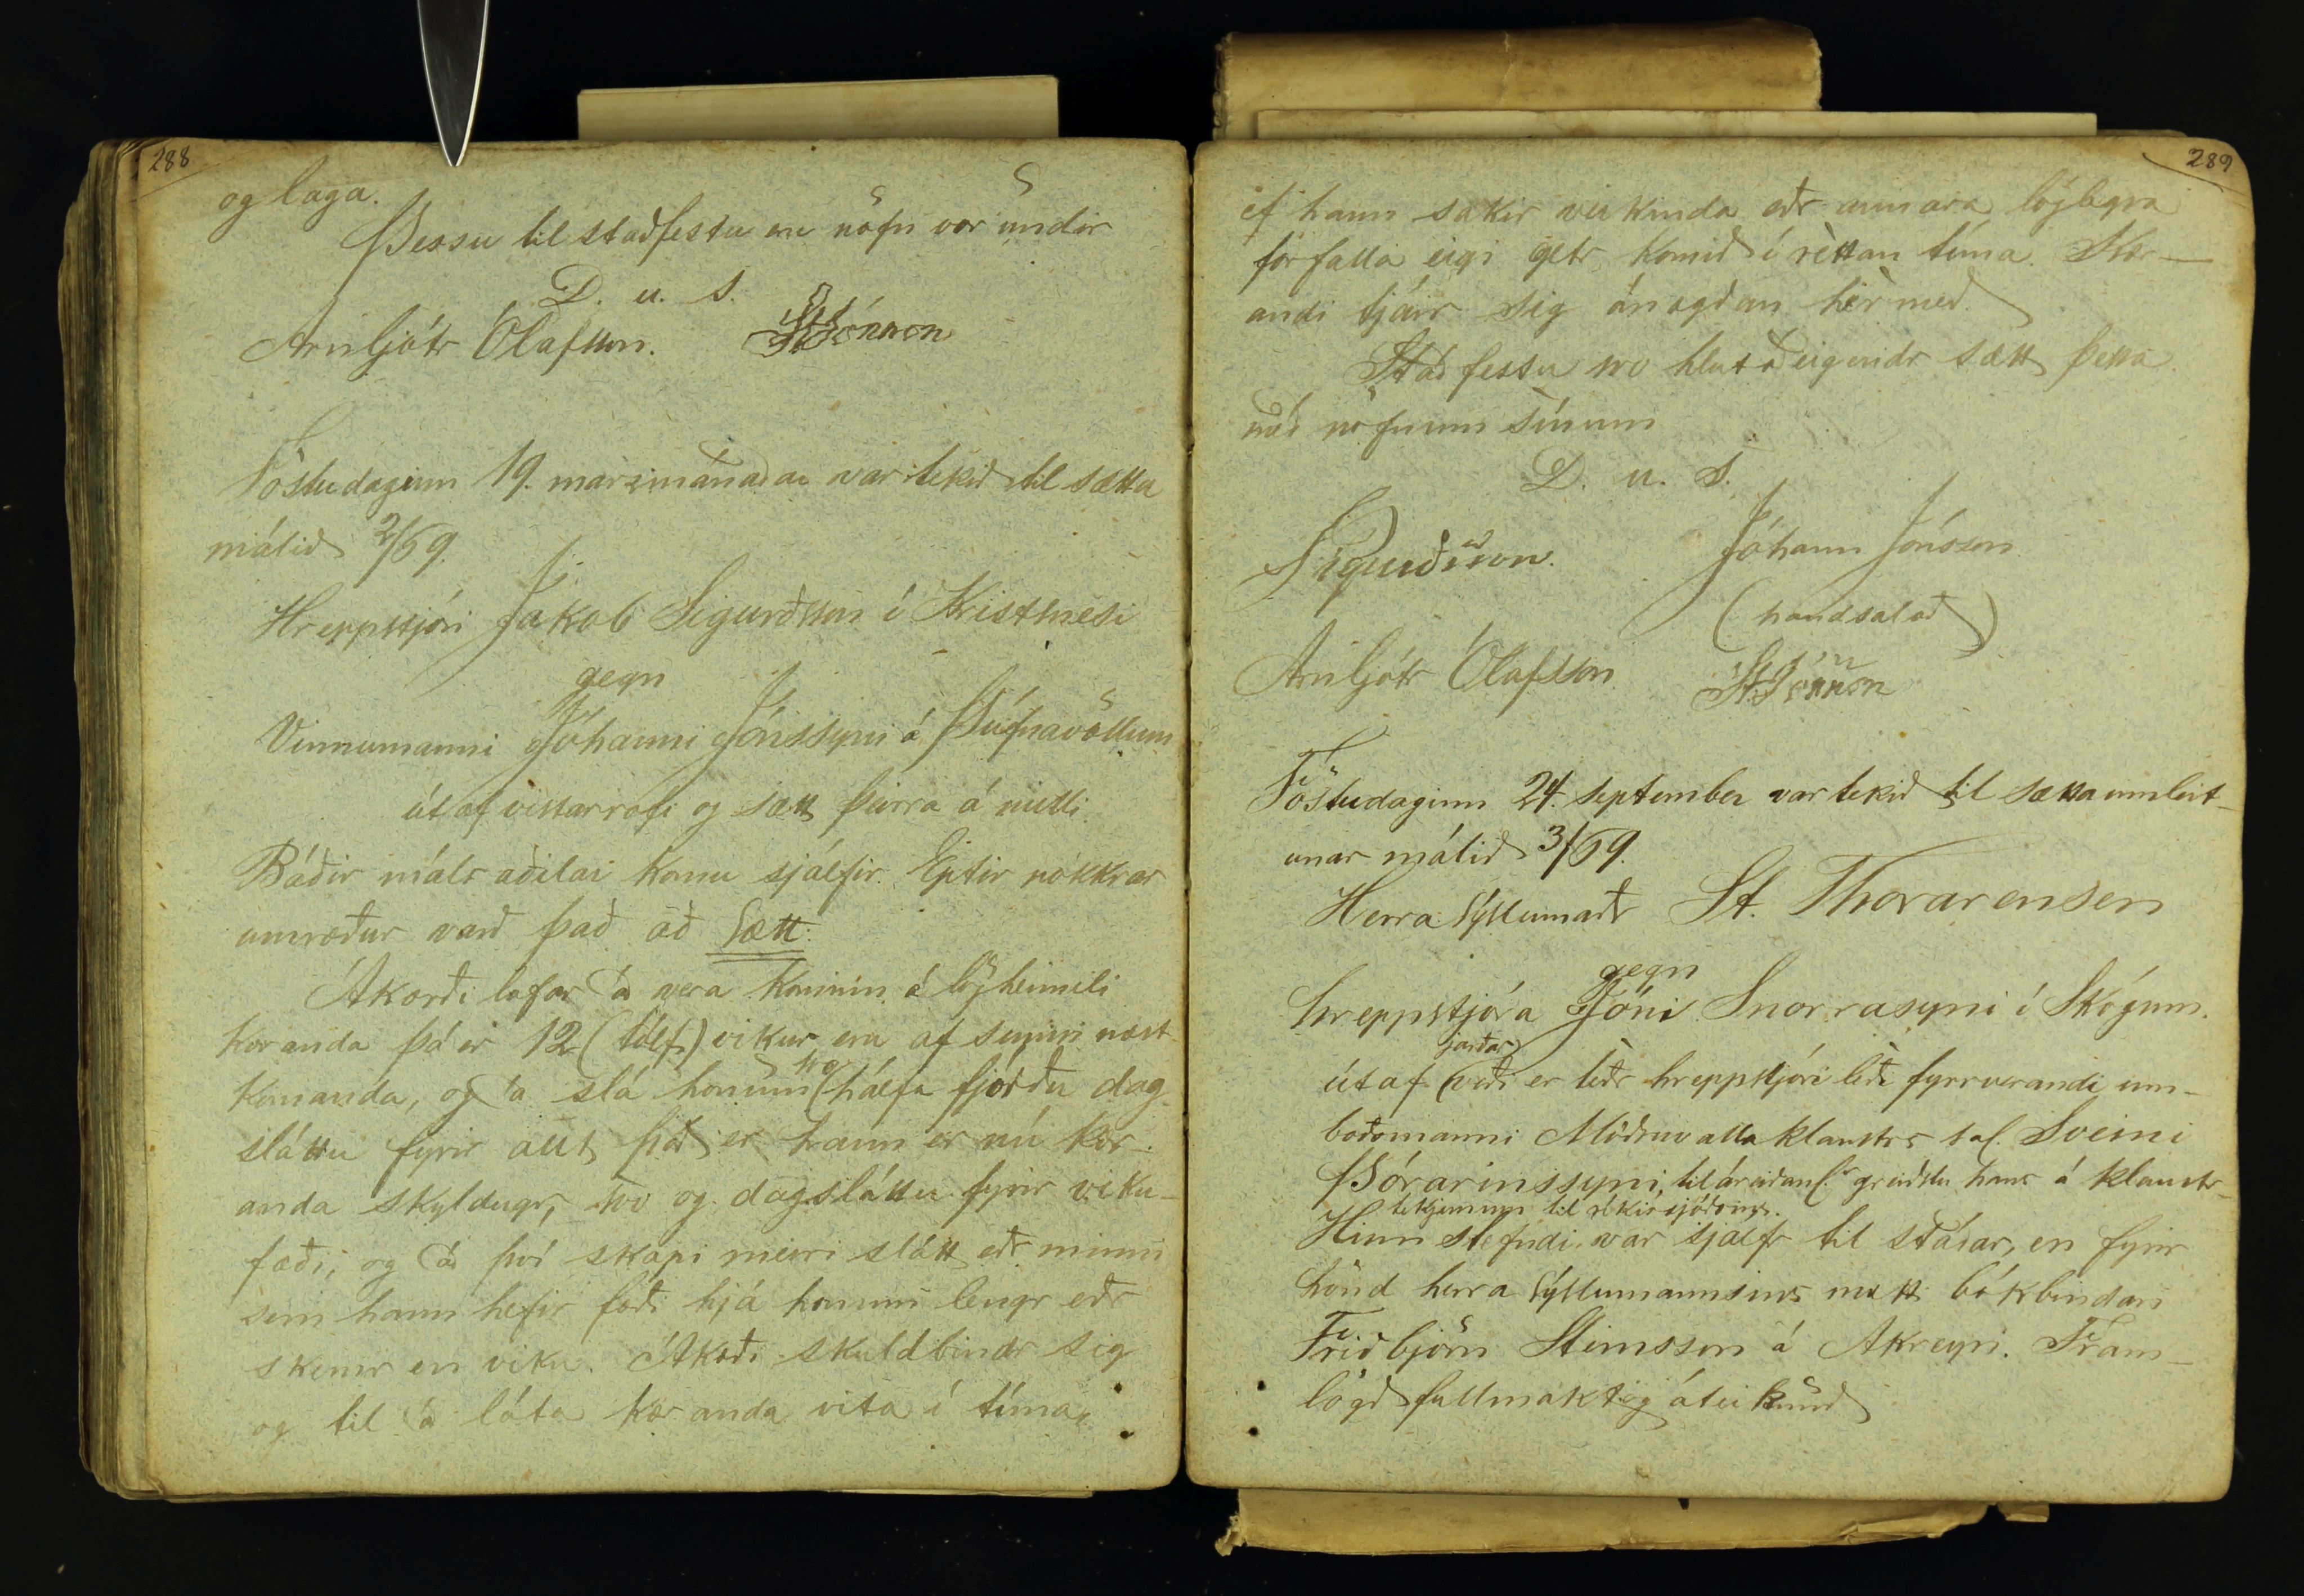 288
og laga.
Þessu til staðfestu eru nöfn vor undir
D. u. s.
Arnljótr Ólafsson. St Jónsson
Föstudaginn 19. marzmánaðar var tekið til sætta
málið 2/69.
Hreppstjóri Jakob Sigurðsson í Kristnesi
gegn
Vinnumanni Jóhanni Jónssyni á Þúfnavöllum
út af vistarrofi og sætt þeirra á milli.
Báðir málsaðilar komu sjálfir. Eptir nokkrar
umræður varð það að sætt:
Ákærði lofar að vera kominn á lögheimili
kæranda þá er 12 (tólf) vikur eru af sumri næst
komanda, og að slá honum svo hálfa fjórðu dag-
sláttu fyrir allt það er hann er nú kær-
anda skyldugr, svo og dagsláttu fyrir viku-
fæði, og að því skapi meiri slátt eðr minni
sem hann hefir fæði hjá honum lengr eðr
skemr en viku. Ákærði skuldbindr sig
og til að láta kæranda vita í tíma,
289
ef hann sakir veikinda eðr annara löglegra
forfalla eigi getr komið í réttan tíma. Kær-
andi tjáir sig ánægðan hér með
Staðfestu svo hlutaðeigendr sætt þessa
með nöfnum sínum
D. u. s.
J Sigurðsson. Jóhann Jónsson
(handsalað)
Arnljótr Ólafsson St. Jónsson
Föstudaginn 24. september var tekið til sættaumleit-
unar málið 3/69.
Herra sýslumaðr St. Thorarensen
gegn
hreppstjóra Jóni Snorrasyni í Skógum.
út af jarðarveði er téðr hreppstjóri léði fyrrverandi um-
boðsmanni Möðruvallaklausturs sál. Sveini
Þórarinssyni, til áreiðanl. greiðslu hans á klaustr-
tekjunum til ríkissjóðsins.
Hinn stefndi var sjálfr til staðar, en fyrir
hönd herra sýslumannsins mætti bókbindari
Friðbjörn Steinsson á Akreyri. Fram-
lögð fullmakt og áteiknuð